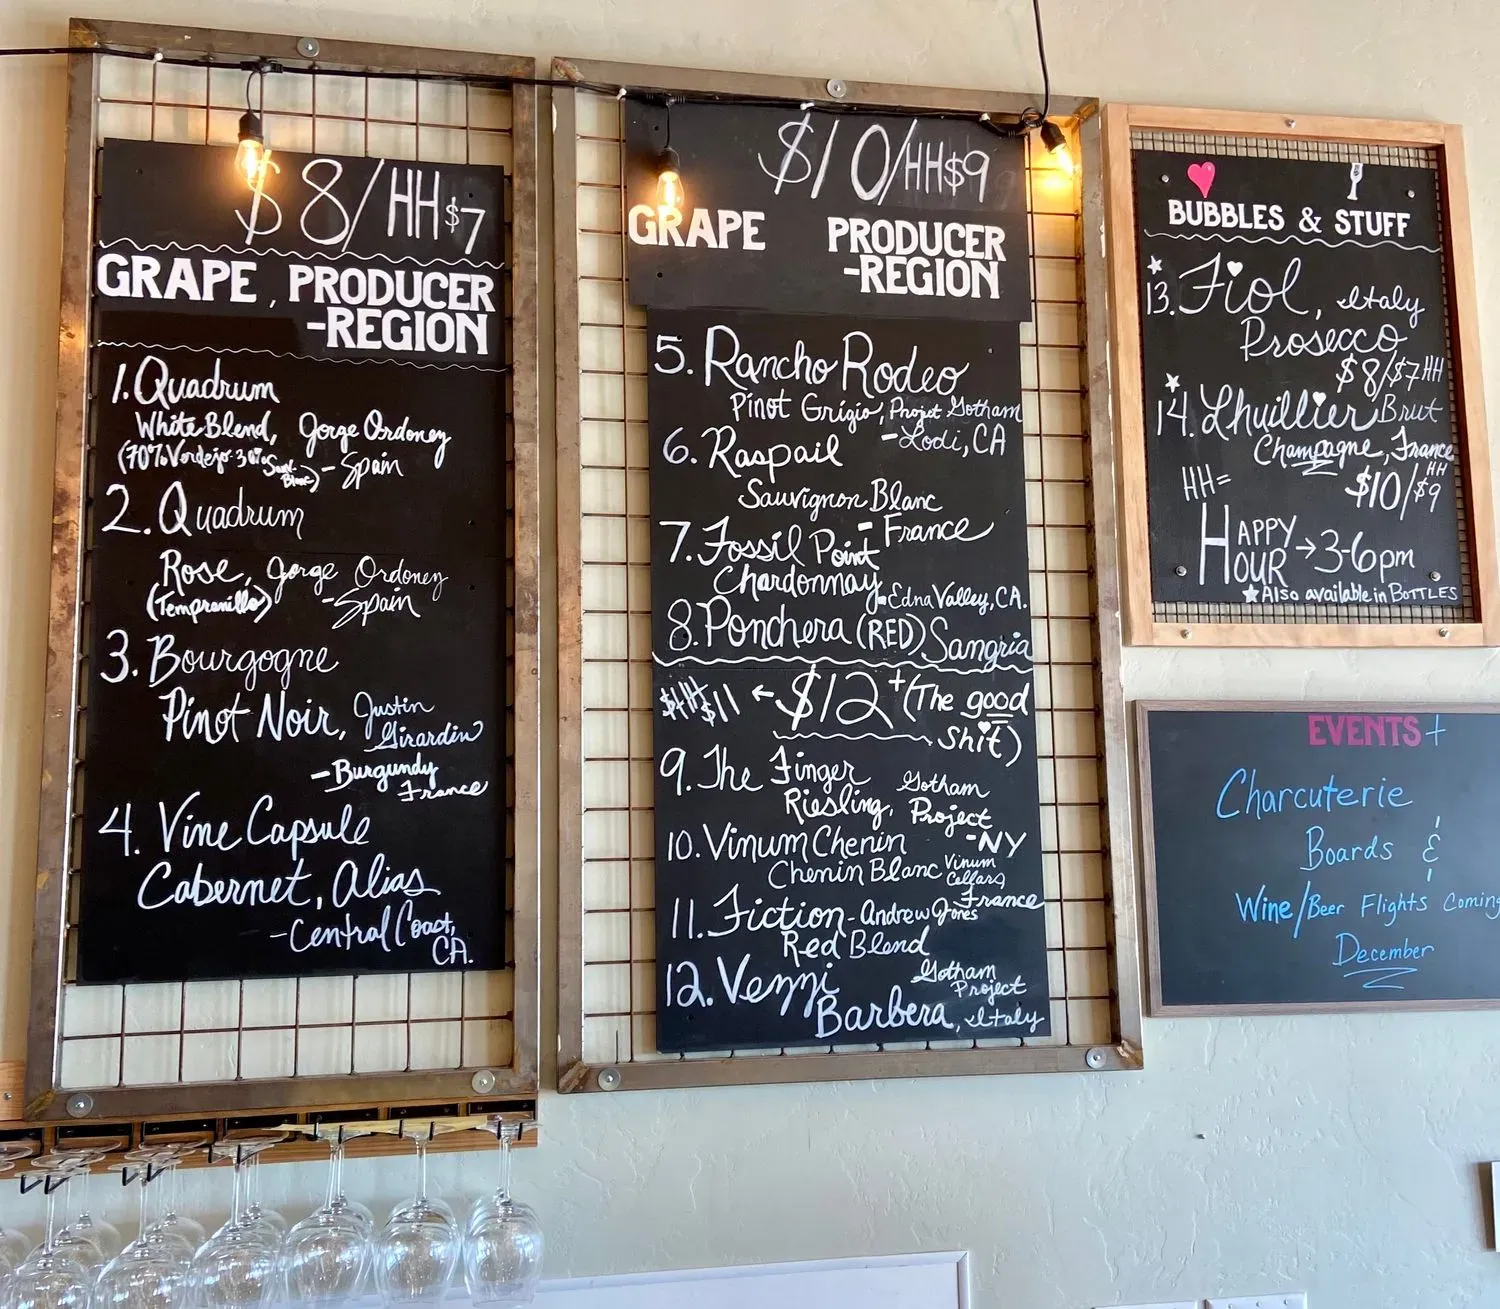 $8/HH $7
GRAPE, PRODUCER
-REGION
1. Quadrum
White Blend, Jorge Ordoney
(70% Verdejo 30% Sauv. Blanc) - Spain
2. Quadrum
Rose, Jorge Ordoney
(Tempranillo) - Spain
3. Bourgogne
Pinot Noir, Justin
Girardin
- Burgundy
France
4. Vine Capsule
Cabernet, Alias
- Central Coast,
CA.
$10/HH$9
GRAPE PRODUCER
-REGION
5. Rancho Rodeo
Pinot Grigio, Projet Gotham
- Lodi, CA
6. Raspail
Sauvignon Blanc
- France
7. Fossil Point
Chardonnay - Edna Valley, CA.
8. Ponchera (RED) Sangria
$HH $11 ← $12+ (The good
shit)
9. The Finger
Riesling, Gotham
Project
- NY
10. Vinum Chenin
Chenin Blanc Vinum
Cellars
France
11. Fiction - Andrew Jones
Red Blend
12. Vezzi
Barbera, Gotham
Project
Italy
BUBBLES & STUFF
13. Fiol, Italy
Prosecco
$8/$7 HH
14. Lhuillier Brut
Champagne, France
$10/$9 HH
HH=
HAPPY
HOUR → 3-6pm
★ Also available in BOTTLES
EVENTS +
Charcuterie
Boards &
Wine/Beer Flights Coming
December